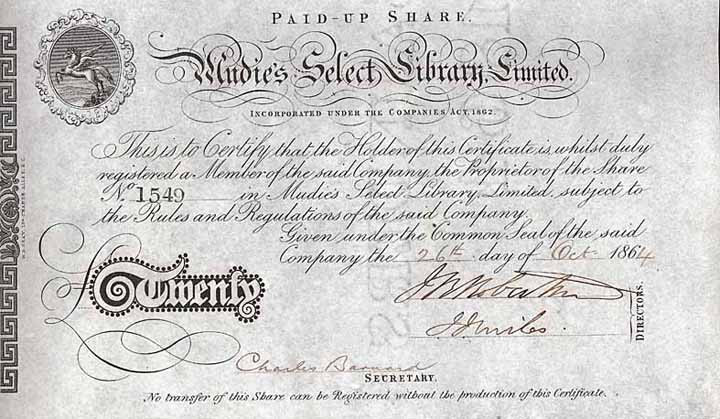 PAID-UP SHARE.
Mudie's Select Library, Limited.
INCORPORATED UNDER THE COMPANIES ACT, 1862.
This is to Certify that the Holder of this Certificate is, whilst duly
registered a Member of the said Company, the Proprietor of the Share
No. 1549 in Mudie's Select Library, Limited, subject to
the Rules and Regulations of the said Company.
Given under the Common Seal of the said
Company the 26th day of Oct 1864
Twenty
DIRECTORS.
J Miles.
Charles Barnard
SECRETARY.
No transfer of this Share can be Registered without the production of this Certificate.